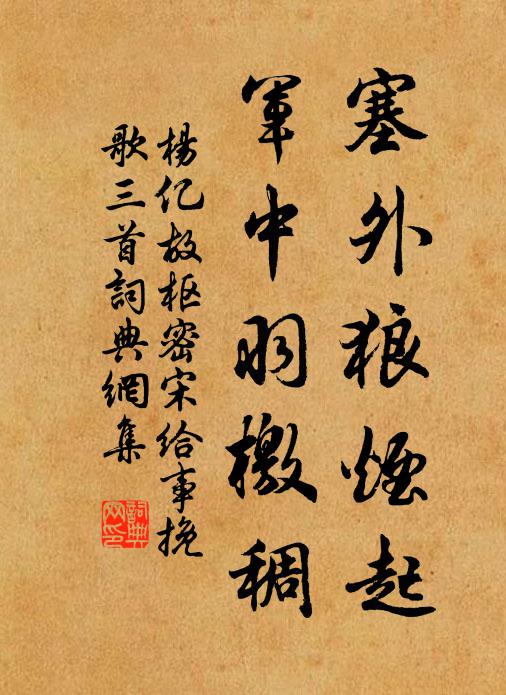 塞外狼煙起
軍中羽檄稠
楊亿故枢密宋给事挽
歌三首詞典網集
詞典网印